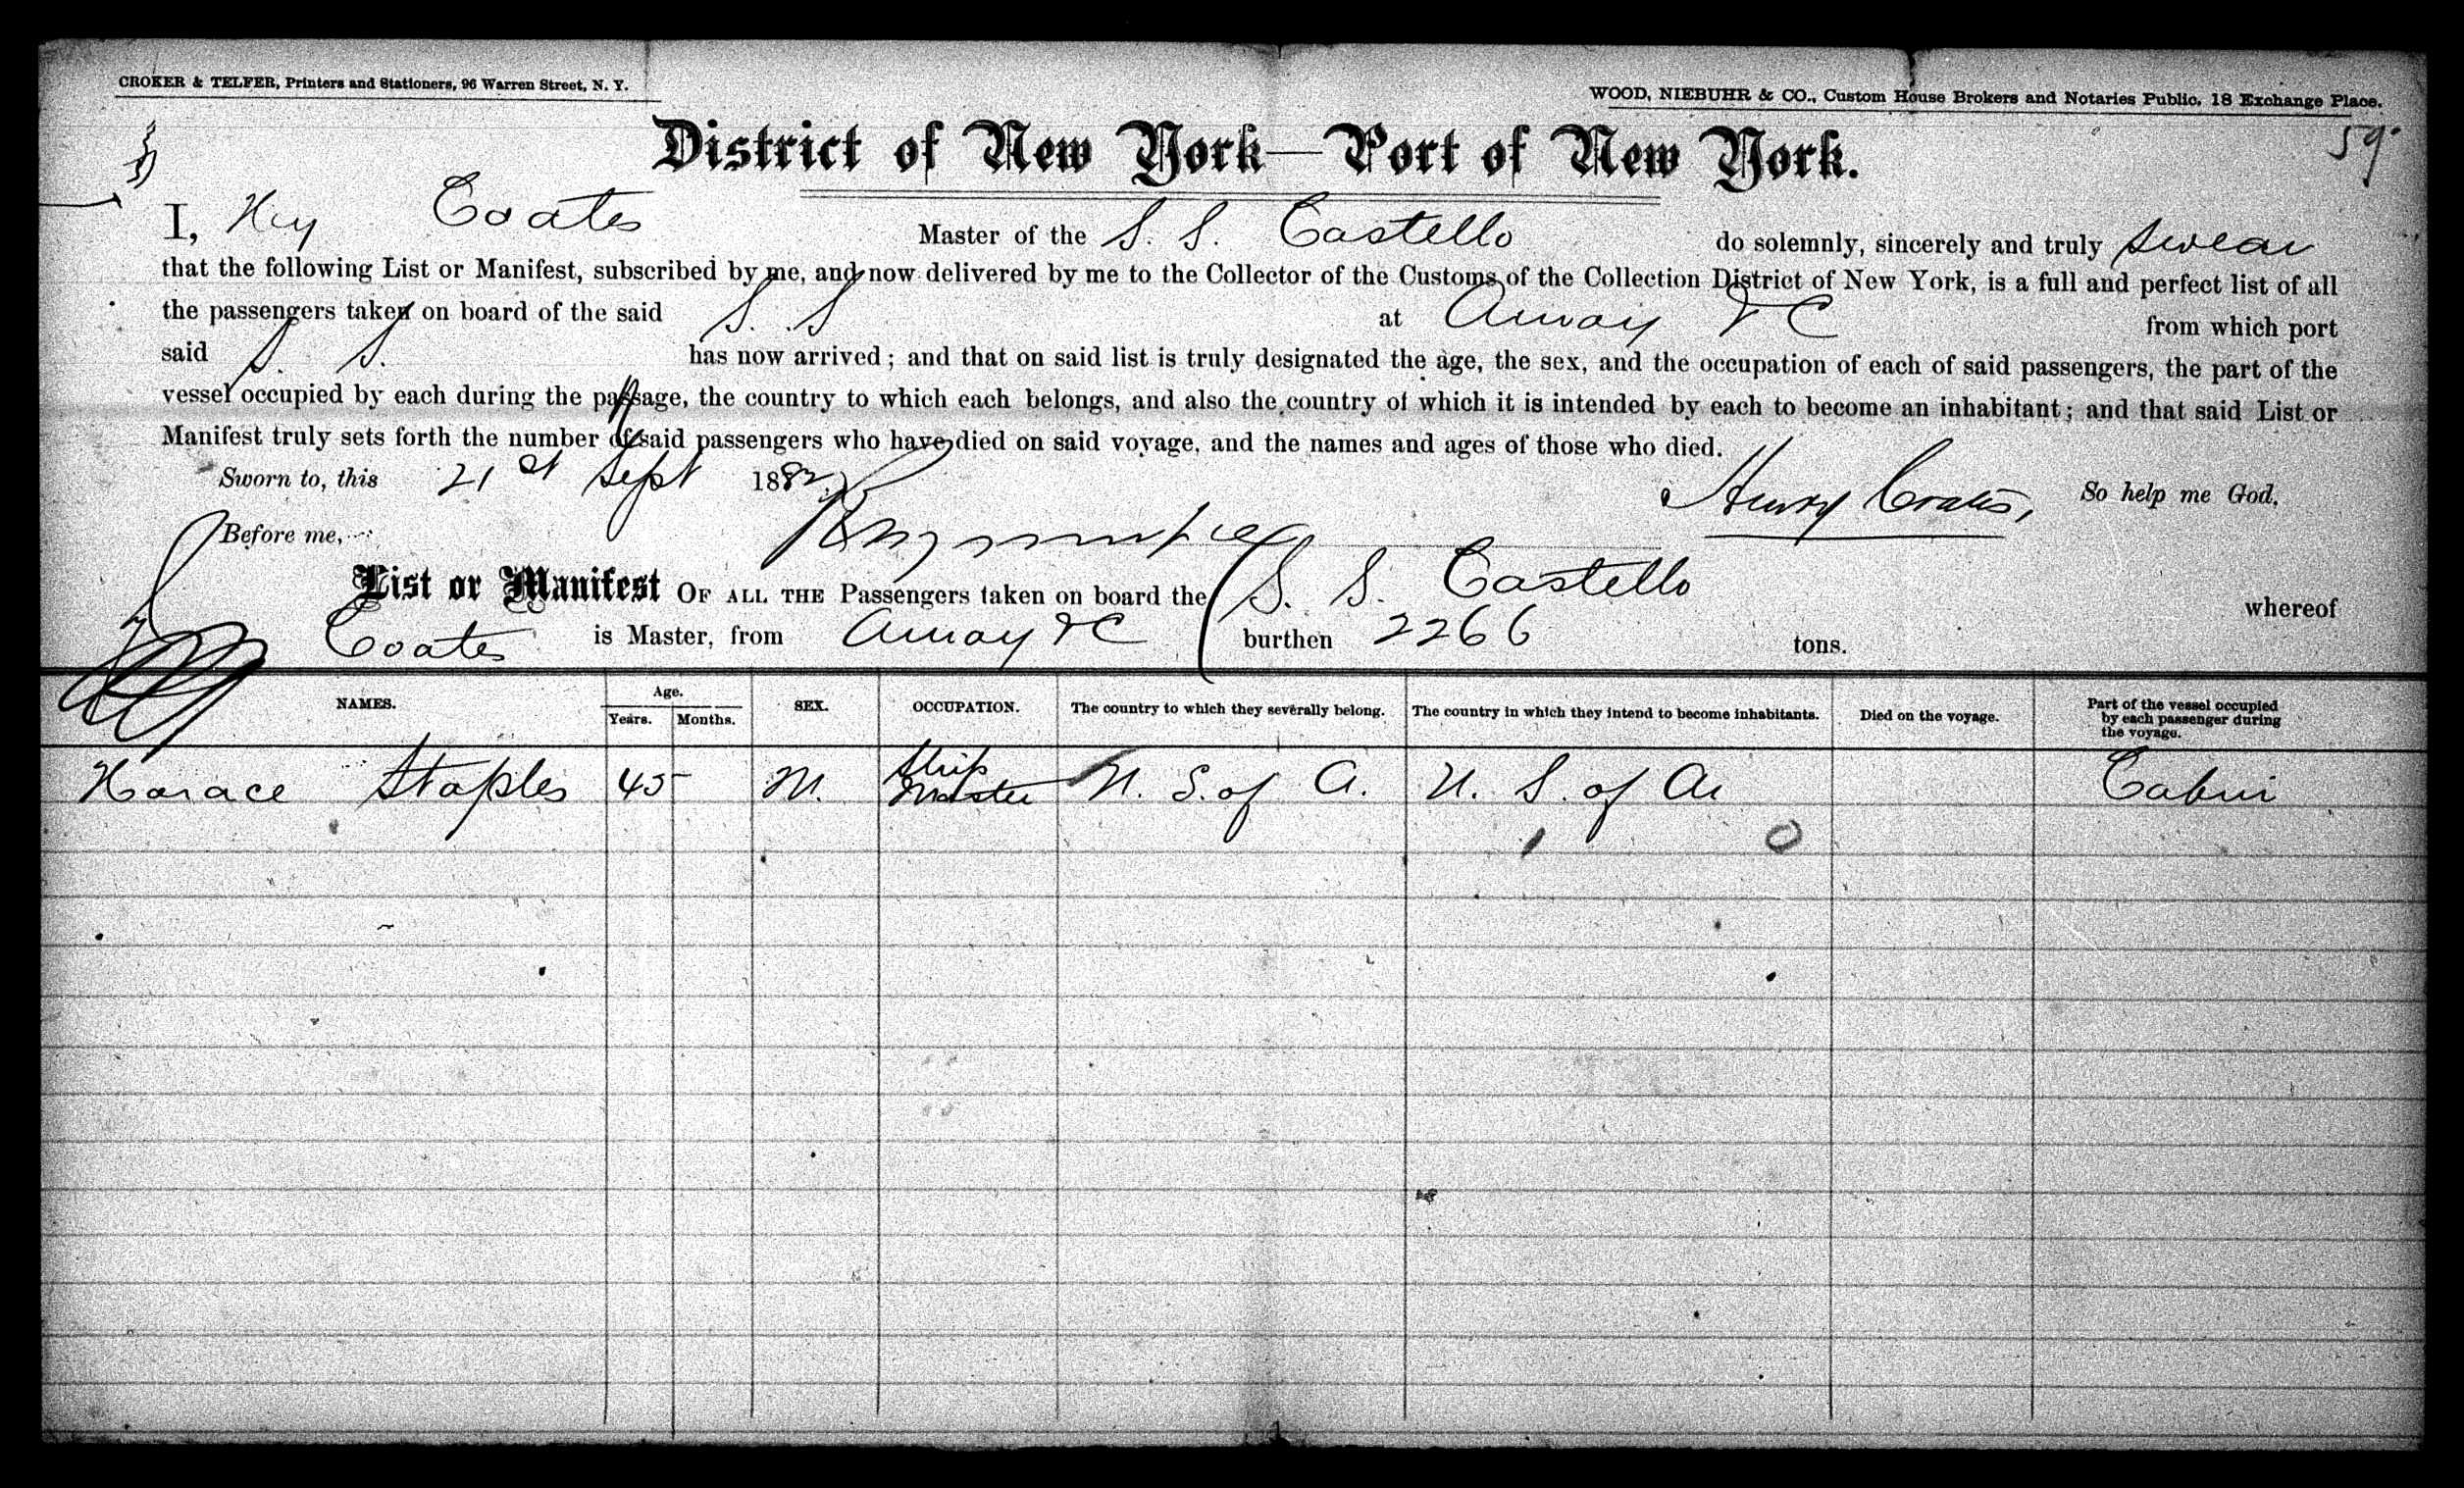 CROKER & TELFER, Printers and Stationers, 96 Warren Street, N. Y.
WOOD, NIEBUHR & CO., Custom House Brokers and Notaries Public, 18 Exchange Place.
59
District of New York—Port of New York.
I, Hy Coates Master of the S. S. Castello do solemnly, sincerely and truly swear
that the following List or Manifest, subscribed by me, and now delivered by me to the Collector of the Customs of the Collection District of New York, is a full and perfect list of all
the passengers taken on board of the said S. S at Amoy &C from which port
said S. S. has now arrived; and that on said list is truly designated the age, the sex, and the occupation of each of said passengers, the part of the
vessel occupied by each during the passage, the country to which each belongs, and also the country of which it is intended by each to become an inhabitant; and that said List or
Manifest truly sets forth the number of said passengers who have died on said voyage, and the names and ages of those who died.
Sworn to, this 21st Sept 1882. Henry Coates, So help me God,
Before me,
List or Manifest OF ALL THE Passengers taken on board the S. S. Castello whereof
Coates is Master, from Amoy &C burthen 2266 tons.
NAMES. Age. Years. Months. SEX. OCCUPATION. The country to which they severally belong. The country in which they intend to become inhabitants. Died on the voyage. Part of the vessel occupied by each passenger during the voyage.
Horace Staples 45 M. Ship Master U. S. of A. U. S. of A Cabin